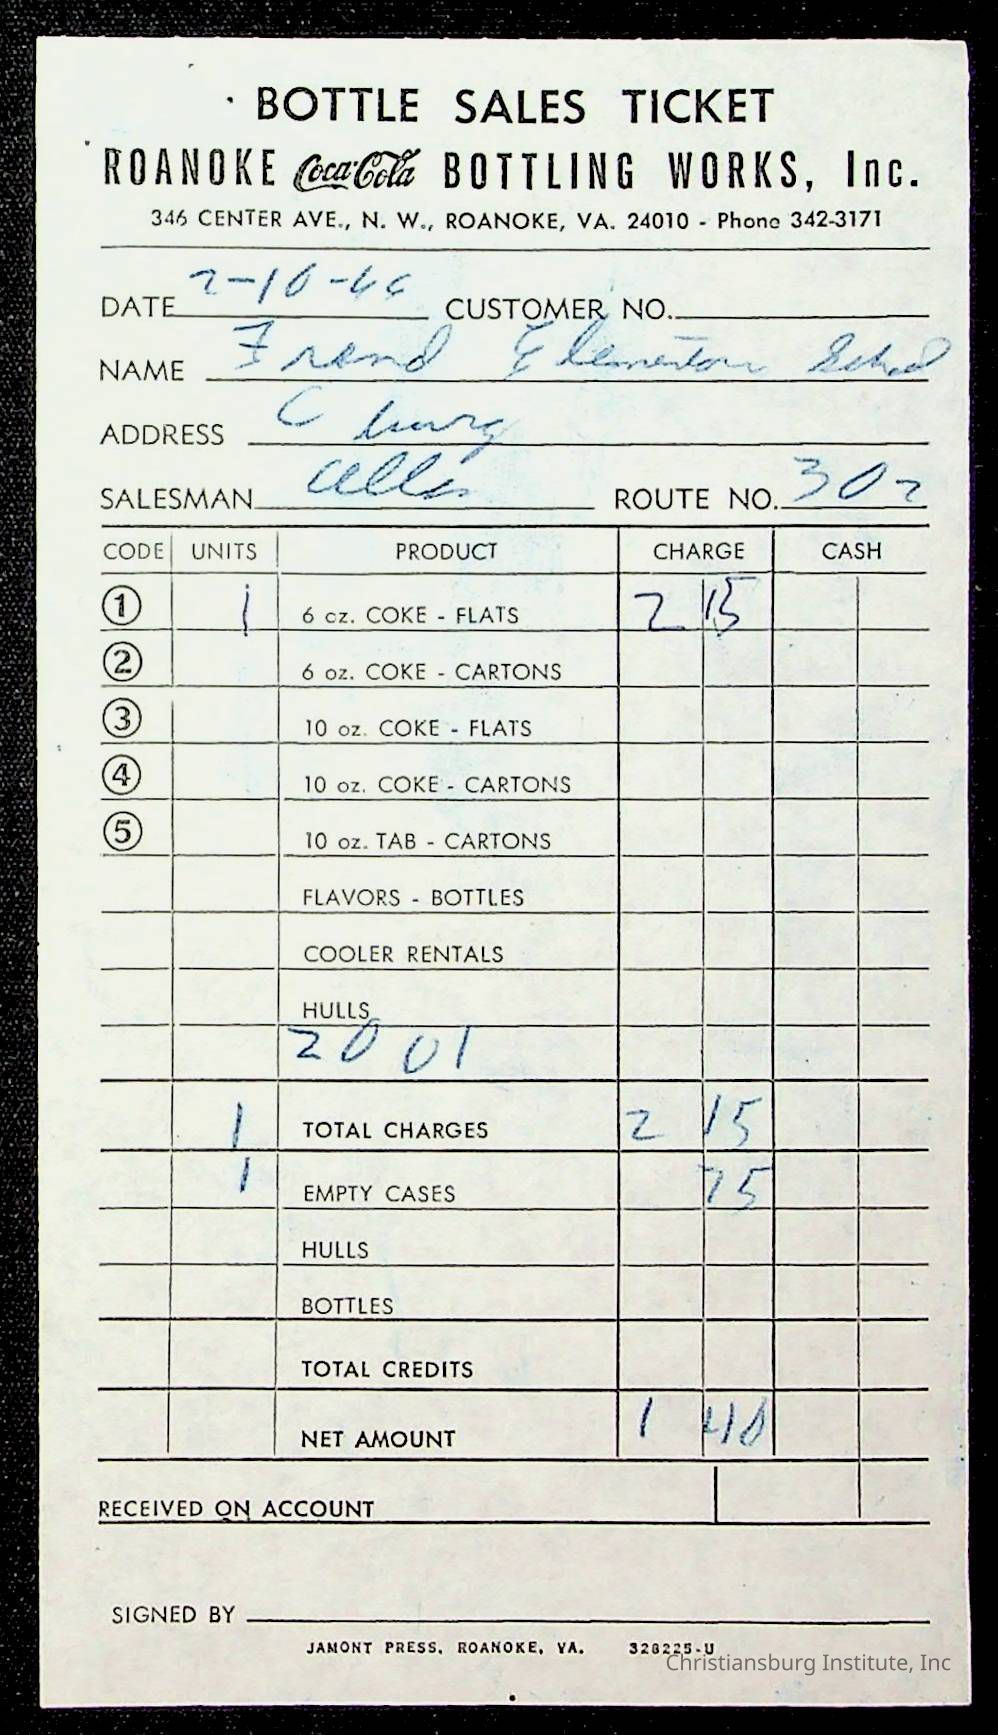 BOTTLE SALES TICKET
ROANOKE Coca-Cola BOTTLING WORKS, Inc.
346 CENTER AVE., N. W., ROANOKE, VA. 24010 - Phone 342-3171
DATE 2-10-66 CUSTOMER NO.
NAME Friend Elementary School
ADDRESS C burg
SALESMAN Allen ROUTE NO. 302
CODE UNITS PRODUCT CHARGE CASH
1 1 6 oz. COKE - FLATS 2 15
2 6 oz. COKE - CARTONS
3 10 oz. COKE - FLATS
4 10 oz. COKE - CARTONS
5 10 oz. TAB - CARTONS
FLAVORS - BOTTLES
COOLER RENTALS
HULLS
20 01
1 TOTAL CHARGES 2 15
1 EMPTY CASES 75
HULLS
BOTTLES
TOTAL CREDITS
NET AMOUNT 1 40
RECEIVED ON ACCOUNT
SIGNED BY
JAMONT PRESS, ROANOKE, VA. 328225-U
Christiansburg Institute, Inc